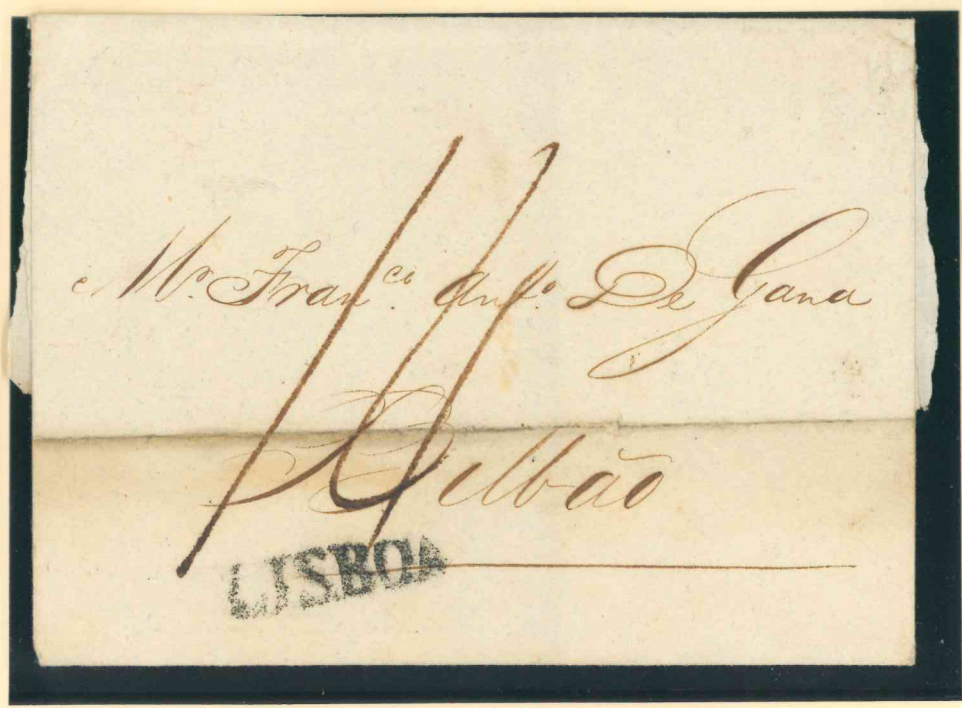 Mr. Franco. Anto. De Gana
Bilbáo
11
LISBOA